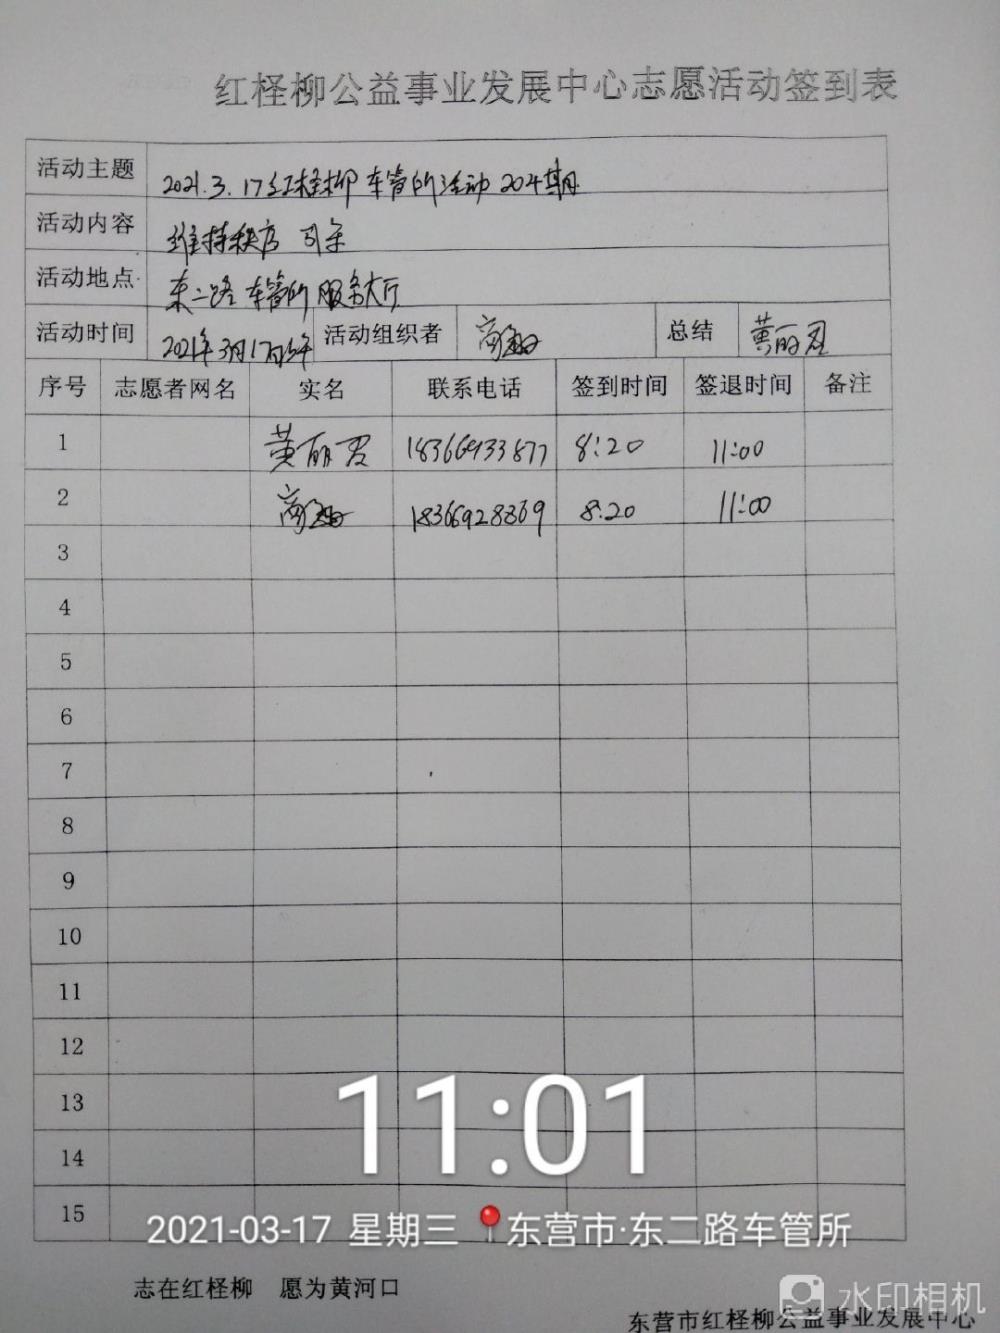 红柽柳公益事业发展中心志愿活动签到表
活动主题 2021.3.17红柽柳 车管所活动 204期
活动内容 维持秩序
活动地点 东二路 车管所 服务大厅
活动时间 2021年3月17日上午 活动组织者 总结 黄丽君
序号 志愿者网名 实名 联系电话 签到时间 签退时间 备注
1 黄丽君 18366933877 8:20 11:00
2 18366928869 8:20 11:00
3
4
5
6
7
8
9
10
11
12
13
14
15
11:01
2021-03-17 星期三 东营市·东二路车管所
志在红柽柳 愿为黄河口
水印相机
东营市红柽柳公益事业发展中心